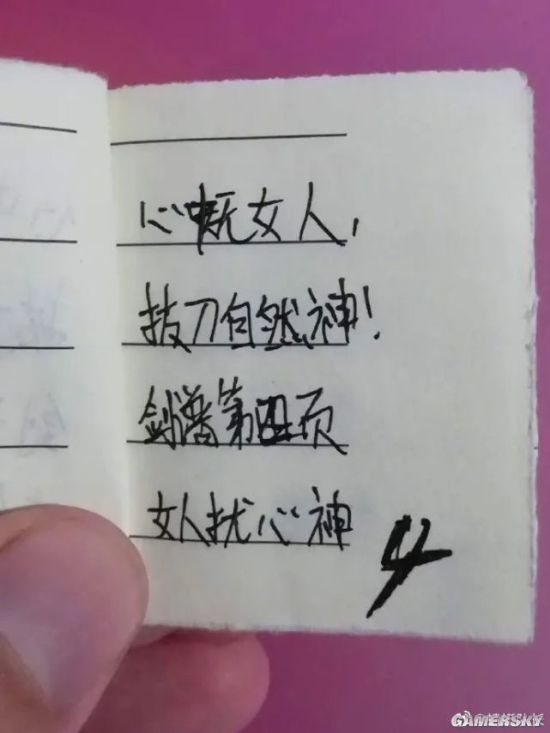 心中无女人，
拔刀自然神！
剑谱第四页
女人扰心神
4
GAMERSKY